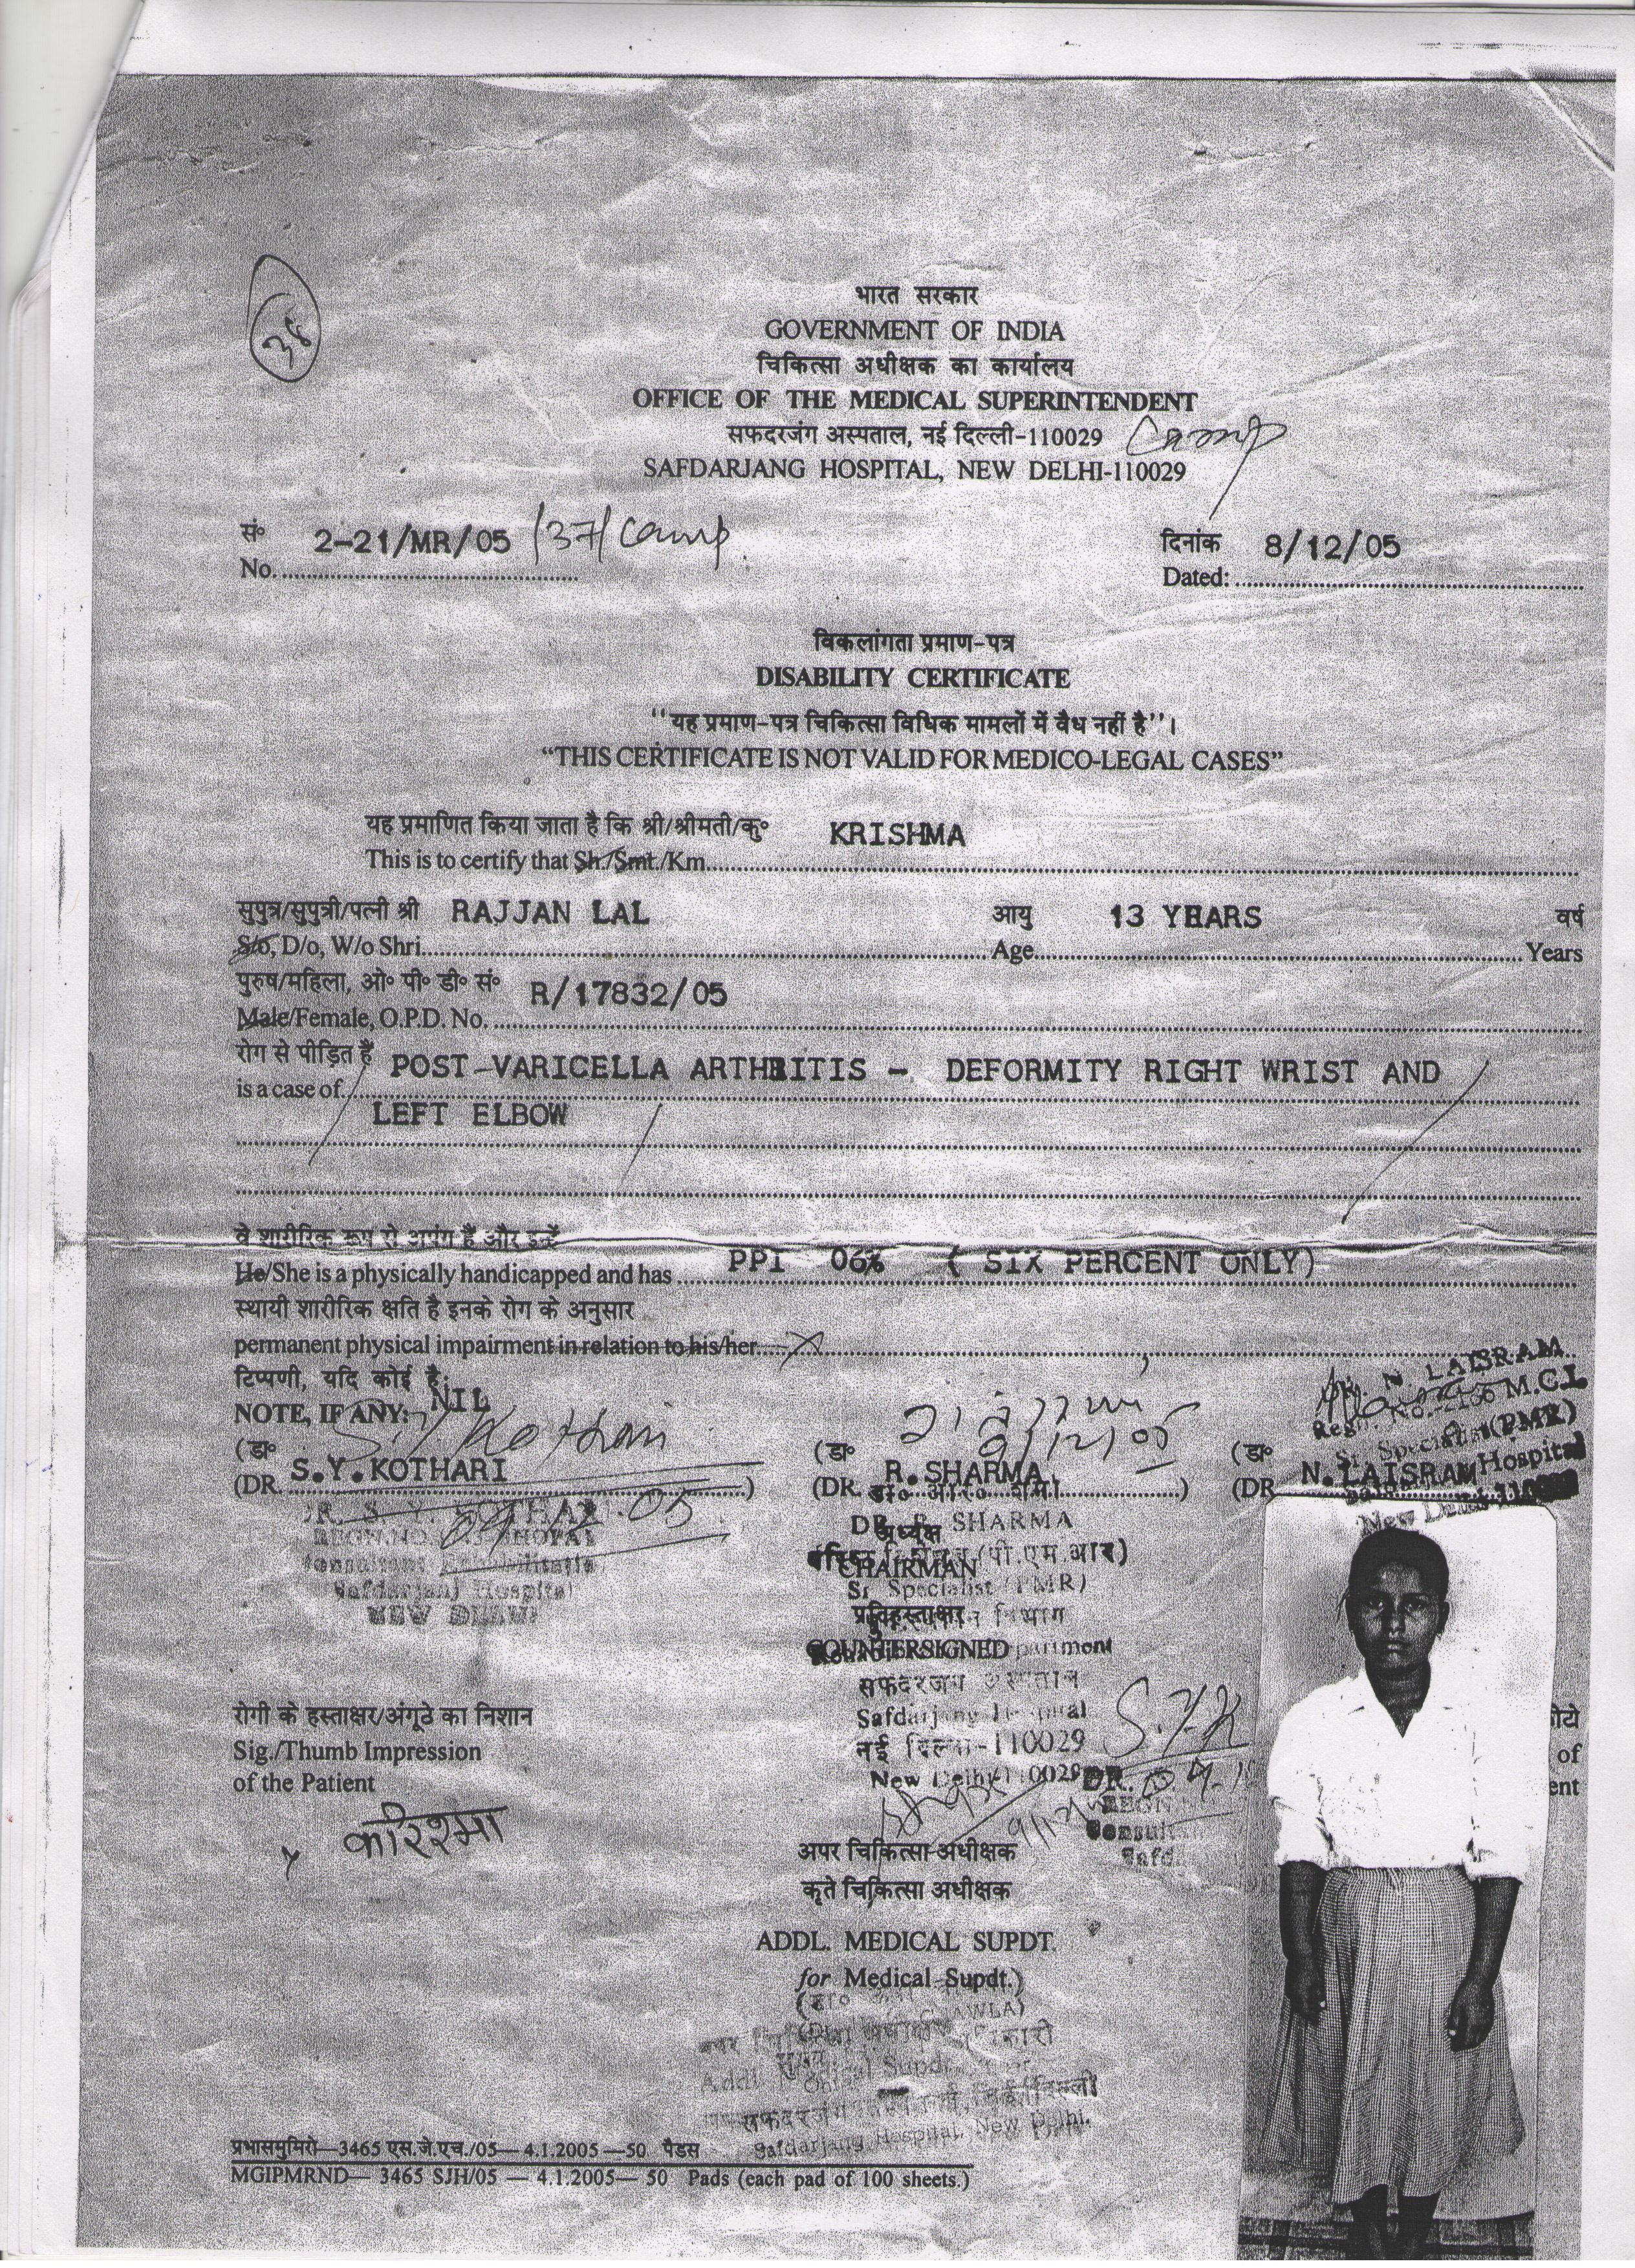 38
भारत सरकार
GOVERNMENT OF INDIA
चिकित्सा अधीक्षक का कार्यालय
OFFICE OF THE MEDICAL SUPERINTENDENT
सफदरजंग अस्पताल, नई दिल्ली-110029 Camp
SAFDARJANG HOSPITAL, NEW DELHI-110029
सं० 2-21/MR/05 /37/Camp
No.
दिनांक 8/12/05
Dated:
विकलांगता प्रमाण-पत्र
DISABILITY CERTIFICATE
"यह प्रमाण-पत्र चिकित्सा विधिक मामलों में वैध नहीं है"।
“THIS CERTIFICATE IS NOT VALID FOR MEDICO-LEGAL CASES”
यह प्रमाणित किया जाता है कि श्री/श्रीमती/कु० KRISHMA
This is to certify that Sh./Smt./Km.
सुपुत्र/सुपुत्री/पत्नी श्री RAJJAN LAL आयु 13 YEARS वर्ष
S/o, D/o, W/o Shri Age Years
पुरुष/महिला, ओ० पी० डी० सं० R/17832/05
Male/Female, O.P.D. No.
रोग से पीड़ित हैं POST-VARICELLA ARTHRITIS - DEFORMITY RIGHT WRIST AND
is a case of
LEFT ELBOW
वे शारीरिक रूप से अपंग हैं और इन्हें
He/She is a physically handicapped and has PPI 06% ( SIX PERCENT ONLY)
स्थायी शारीरिक क्षति है इनके रोग के अनुसार
permanent physical impairment in relation to his/her
टिप्पणी, यदि कोई है:
NOTE, IF ANY: NIL
S.Y. Kothari
9/12/05
DR. N. LAISRAM
Regn. No.- M.C.I.
Sr. Specialist (PMR)
Hospital
New Delhi
(डा० (डा० (डा०
(DR. S.Y.KOTHARI) (DR. R.SHARMA) (DR N.LAISRAM
डा० आर० शर्मा
DR. R. SHARMA
अध्यक्ष
(पी.एम.आर)
CHAIRMAN
Sr Specialist (PMR)
प्रतिहस्ताक्षर
विभाग
COUNTERSIGNED
सफदरजंग अस्पताल
Safdarjang Hospital
नई दिल्ली-110029
New Delhi-110029
Consultant Rehabilitation
Safdarjang Hospital
NEW DELHI
रोगी के हस्ताक्षर/अंगूठे का निशान
Sig./Thumb Impression
of the Patient
करिश्मा
S.Y.K
DR.
REGN
Consultan
Safd
फोटो
of
ent
अपर चिकित्सा अधीक्षक
कृते चिकित्सा अधीक्षक
ADDL. MEDICAL SUPDT.
for Medical Supdt.)
Addl. Medical Supdt.
सफदरजंग नई दिल्ली
Safdarjang Hospital, New Delhi.
प्रभासमुमिरो—3465 एस.जे.एच./05— 4.1.2005 —50 पैडस
MGIPMRND— 3465 SJH/05 — 4.1.2005— 50 Pads (each pad of 100 sheets.)